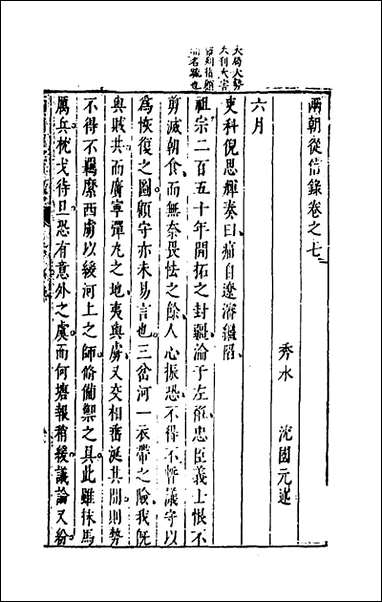 兩朝從信錄卷之七
秀水 沈國元述
六月
吏科倪思輝奏曰痛自遼瀋繼陷
祖宗二百五十年開拓之封疆淪于左袵忠臣義士恨不
剪滅朝食而無奈畏怯之餘人心振恐不得不暫議守以
爲恢復之圖顧守亦未易言也三岔河一衣帶之險我旣
與賊共而廣寧彈丸之地夷與虜又交相番涎其間則勢
不得不羈縻西虜以緩河上之師脩備禦之具此雖抹馬
厲兵枕戈待旦恐有意外之虞而何塘報稍緩議論又紛
大局大勢